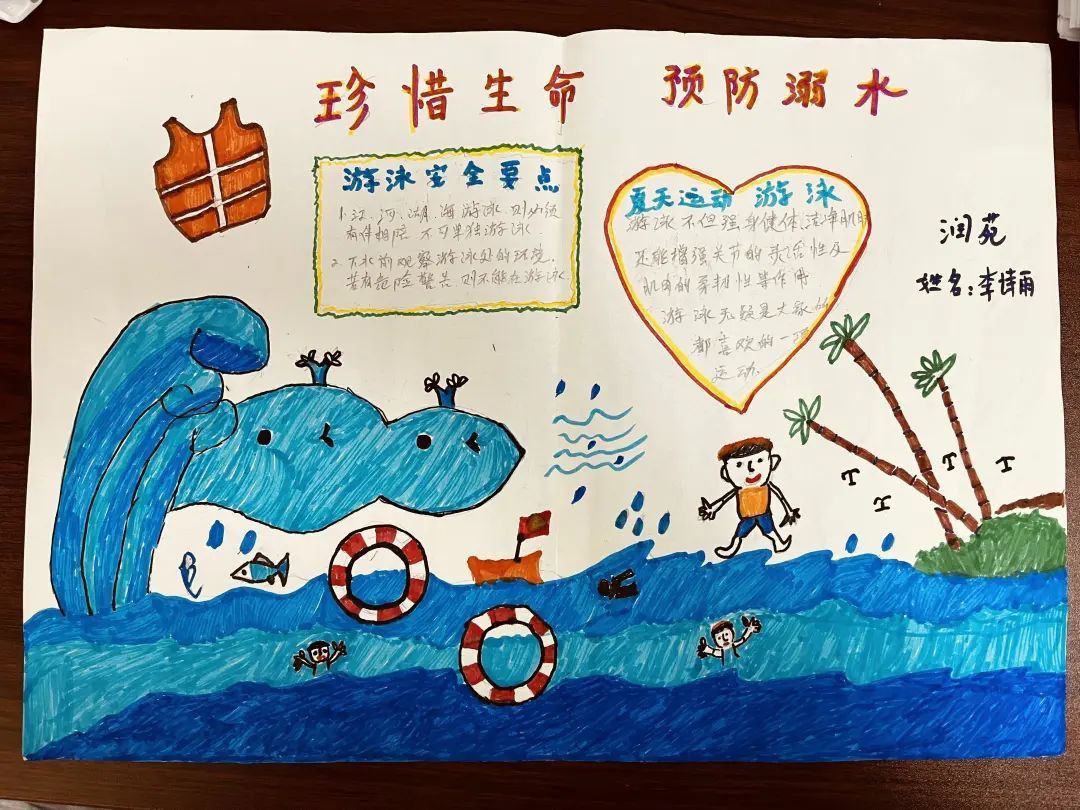 珍惜生命 预防溺水
游泳安全要点
1.江、河、湖、海游泳,则必须
有伴相陪 不可单独游泳.
2.下水前观察游泳处的环境
若有危险警告.则不能在游泳
夏天运动 游泳
游泳不但强身健体、洁净肌肤
还能增强关节的灵活性及
肌肉的柔韧性等作用
游泳无疑是大家的
都喜欢的一项
运动.
润苑
姓名:李诗雨